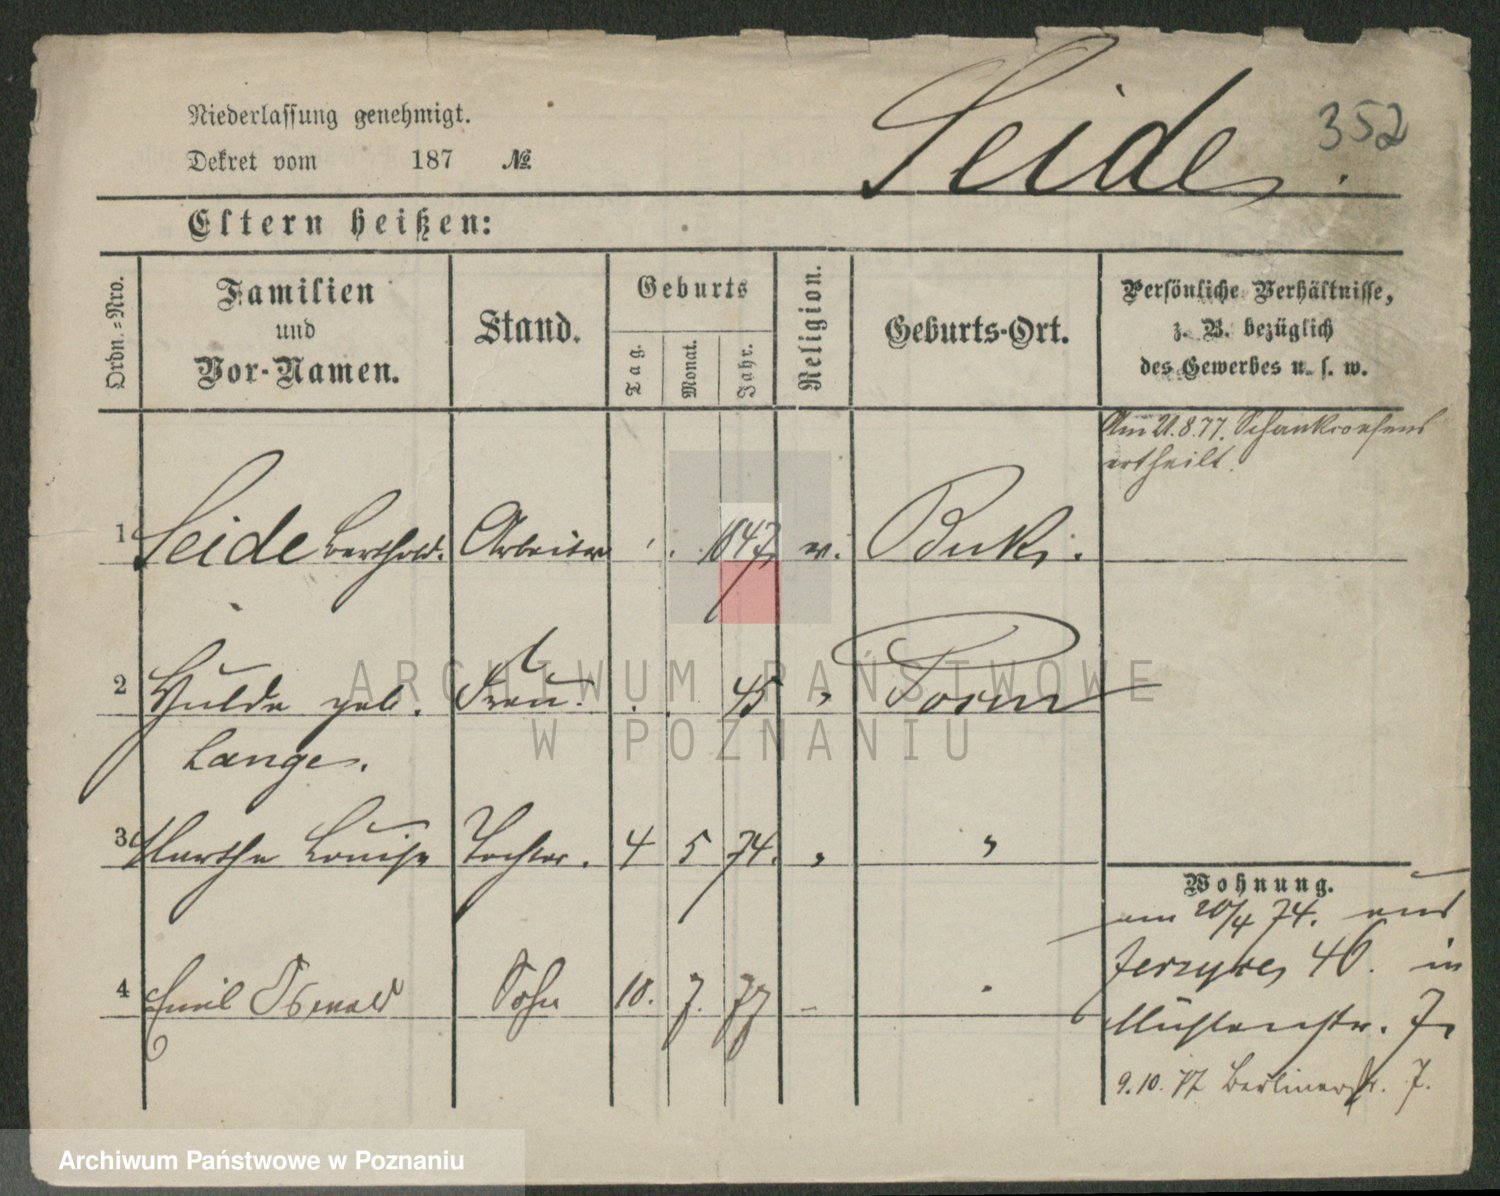 Seide.
352
Niederlassung genehmigt.
Dekret vom 187 №
Eltern heißen:
Ordn.-Nro.
Familien
und
Vor-Namen.
Stand.
Geburts
Tag.
Monat.
Jahr.
Religion.
Geburts-Ort.
Persönliche Verhältnisse,
z. B. bezüglich
des Gewerbes u. s. w.
Am 21.8.77. Schankconsens
ertheilt.
1 Seide Berthold. Arbeiter 1847 ev. Buk.
2 Hulda geb. Frau. 45 " Posen
Lange.
3 Martha Louise Tochter. 4 5 74. " "
4 Emil Oswald Sohn 10. 7. 77 -
Wohnung.
am 20/4 74. aus
Jerzyce 46. in
Mühlenstr. 7.
9.10.77 Berlinerstr. 7.
ARCHIWUM PAŃSTWOWE
W POZNANIU
Archiwum Państwowe w Poznaniu